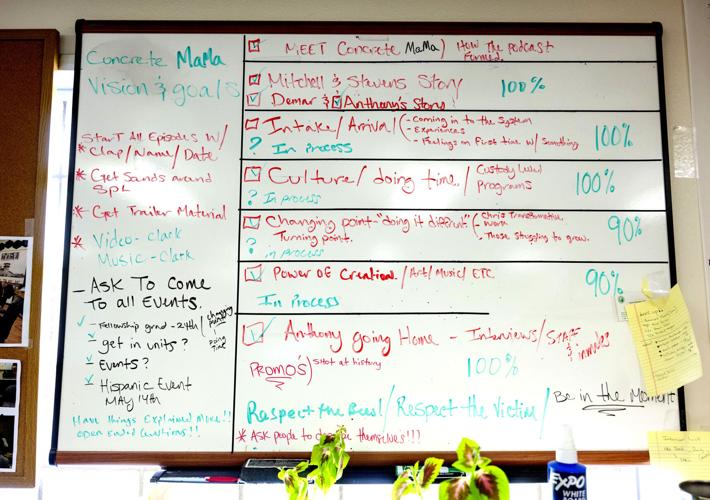 Concrete MaMa
Vision & goals
StarT All Episodes W/
Clap/Name/Date
* Get Sands around
SPL
* Get Trailer Material
* Video - Clark
Music - Clark
- ASK To Come
To all Events.
- Fellowship grad - 24th
changing
Doing
Time
- get in units?
- Events?
- Hispanic Event
MAY 14th
Have things Explained More!!
open End'd Questions!!
MEET Concrete MaMa) How The podcast
Formed.
Mitchell & Stevens Story 100%
Demar & Anthony's Story!
Intake/Arrival (- Coming in to the System
- Experiences
- Feelings on First time w/ something
100%
? In process
Culture/doing time./ Custody Level
Programs
100%
? In process
Changing point - "doing it different" (- Chris Transformation.
Turning point. - Work
- Those Struggling to grow.
90%
? in process
Power OF Creation./Art/Music/ETC
90%
In Process
Anthony going Home - Interviews/STAFF
& inmates
PROMO'S) SHOT at history 100%
Raspect the Bus!/Respect the Victim/ Be in the Moment
* ASK people to describe themselves!!!
EXPO
WHITE
BOARD